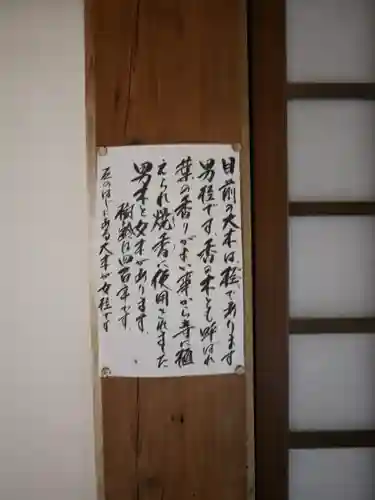 目前の大木は、桂であります
男桂です。香の木とも呼ばれ
葉の香りがよい事から寺に植
えられ焼香に使用されました
男木と女木があります。
樹齢は四百年です
左のはしにある大木が女桂です